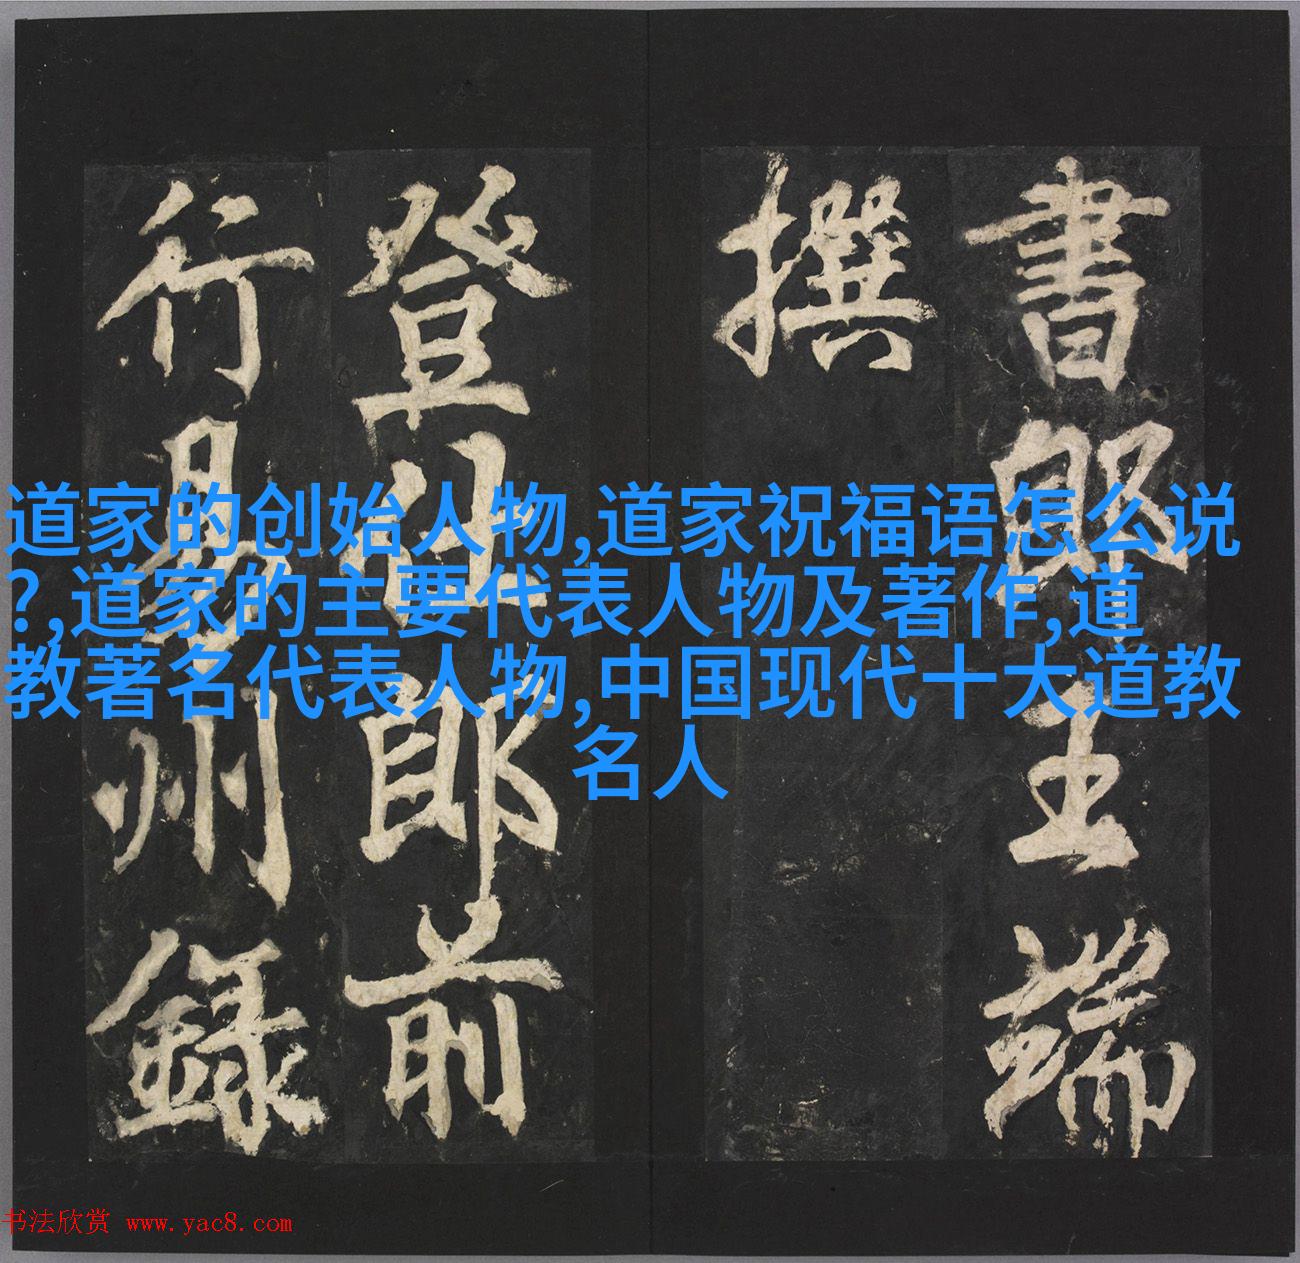 書郎王端
撰
登仕郎前
行易州録
道家的创始人物,道家祝福语怎么说
?,道家的主要代表人物及著作,道
教著名代表人物,中国现代十大道教
名人
书法欣赏 www.yac8.com